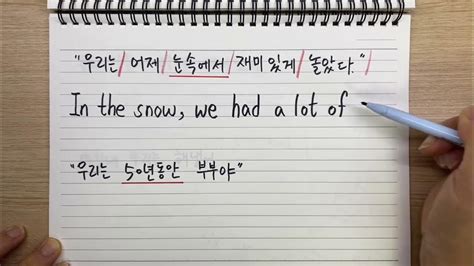 "우리는/어제/눈속에서/재미있게/놀았다."/
In the snow, we had a lot of
"우리는 50년동안 부부야"